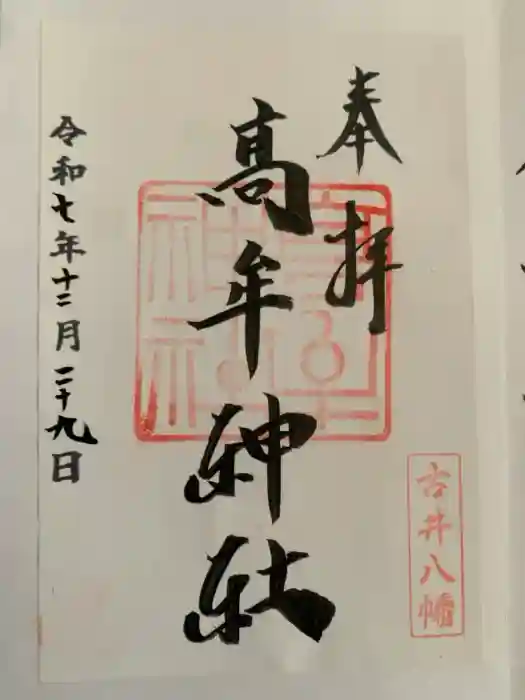 奉拝
古井八幡
高牟神社
令和七年十二月二十九日